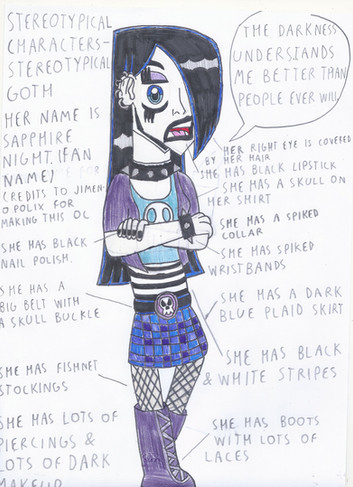 STEREOTYPICAL
CHARACTERS-
STEREOTYPICAL
GOTH
HER NAME IS
SAPPHIRE
NIGHT. (FAN
NAME)
CREDITS TO JIMEN-
O POLIX FOR
MAKING THIS OC
SHE HAS BLACK
NAIL POLISH.
SHE HAS A
BIG BELT WITH
A SKULL BUCKLE
SHE HAS FISHNET
STOCKINGS
SHE HAS LOTS OF
PIERCINGS &
LOTS OF DARK
MAKEUP
THE DARKNESS
UNDERSTANDS
ME BETTER THAN
PEOPLE EVER WILL
HER RIGHT EYE IS COVERED
BY HER HAIR
SHE HAS BLACK LIPSTICK
SHE HAS A SKULL ON
HER SHIRT
SHE HAS A SPIKED
COLLAR
SHE HAS SPIKED
WRISTBANDS
SHE HAS A DARK
BLUE PLAID SKIRT
SHE HAS BLACK
& WHITE STRIPES
SHE HAS BOOTS
WITH LOTS OF
LACES